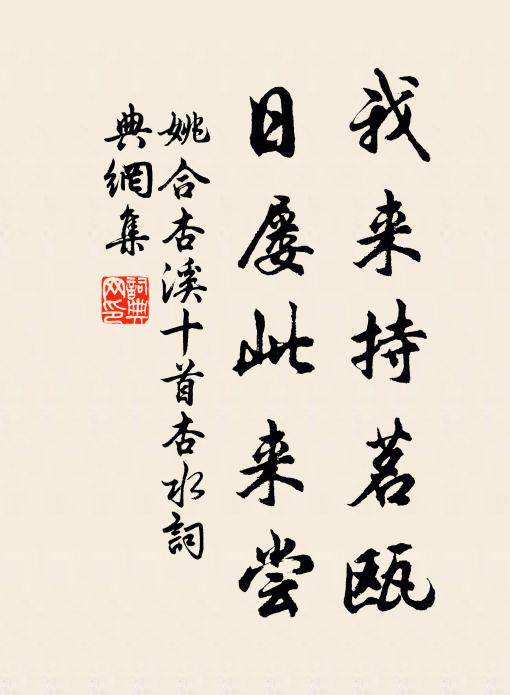 我来持茗瓯
日屡此来尝
姚合杏溪十首杏水詞
典網集
詞典
网印